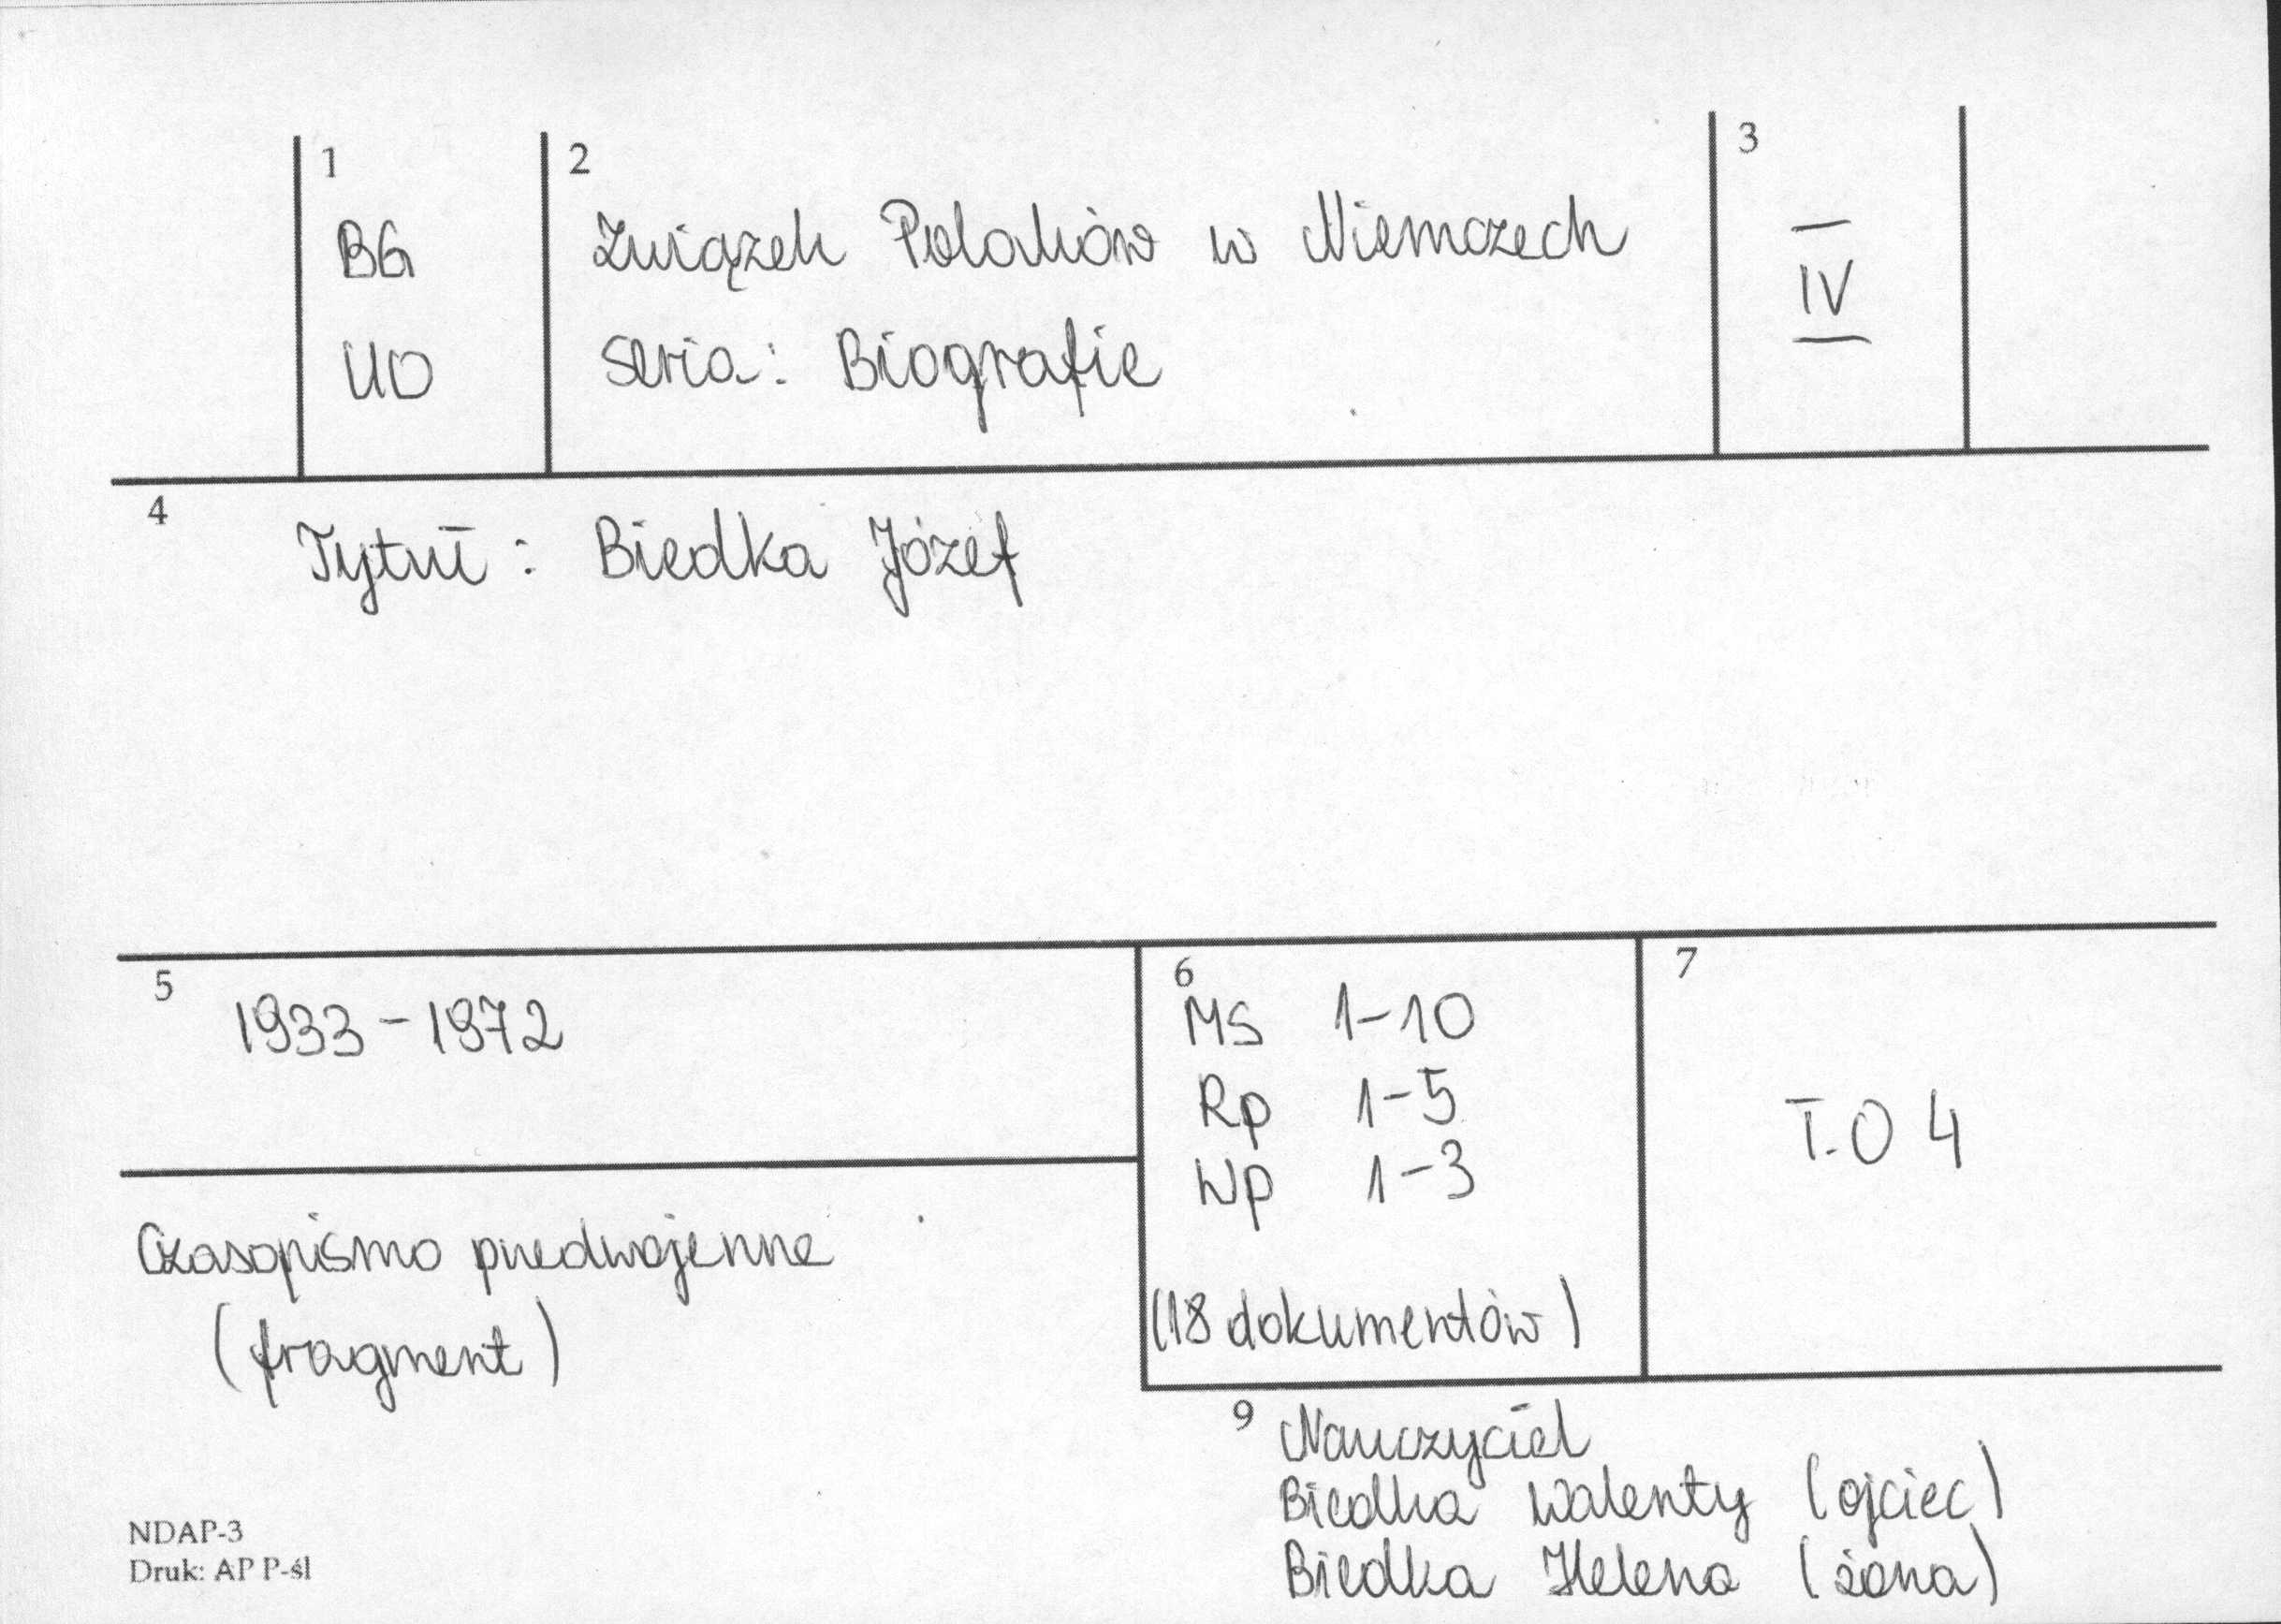 1
BG
UO
2
Związek Polaków w Niemczech
seria: Biografie
3
IV
4
Tytuł: Biedka Józef
5
1933-1972
6
MS 1-10
Rp 1-5
Wp 1-3
(18 dokumentów)
7
T.O 4
Czasopismo przedwojenne
(fragment)
9 Nauczyciel
Biedka Walenty (ojciec)
Biedka Helena (żona)
NDAP-3
Druk: AP P-śl